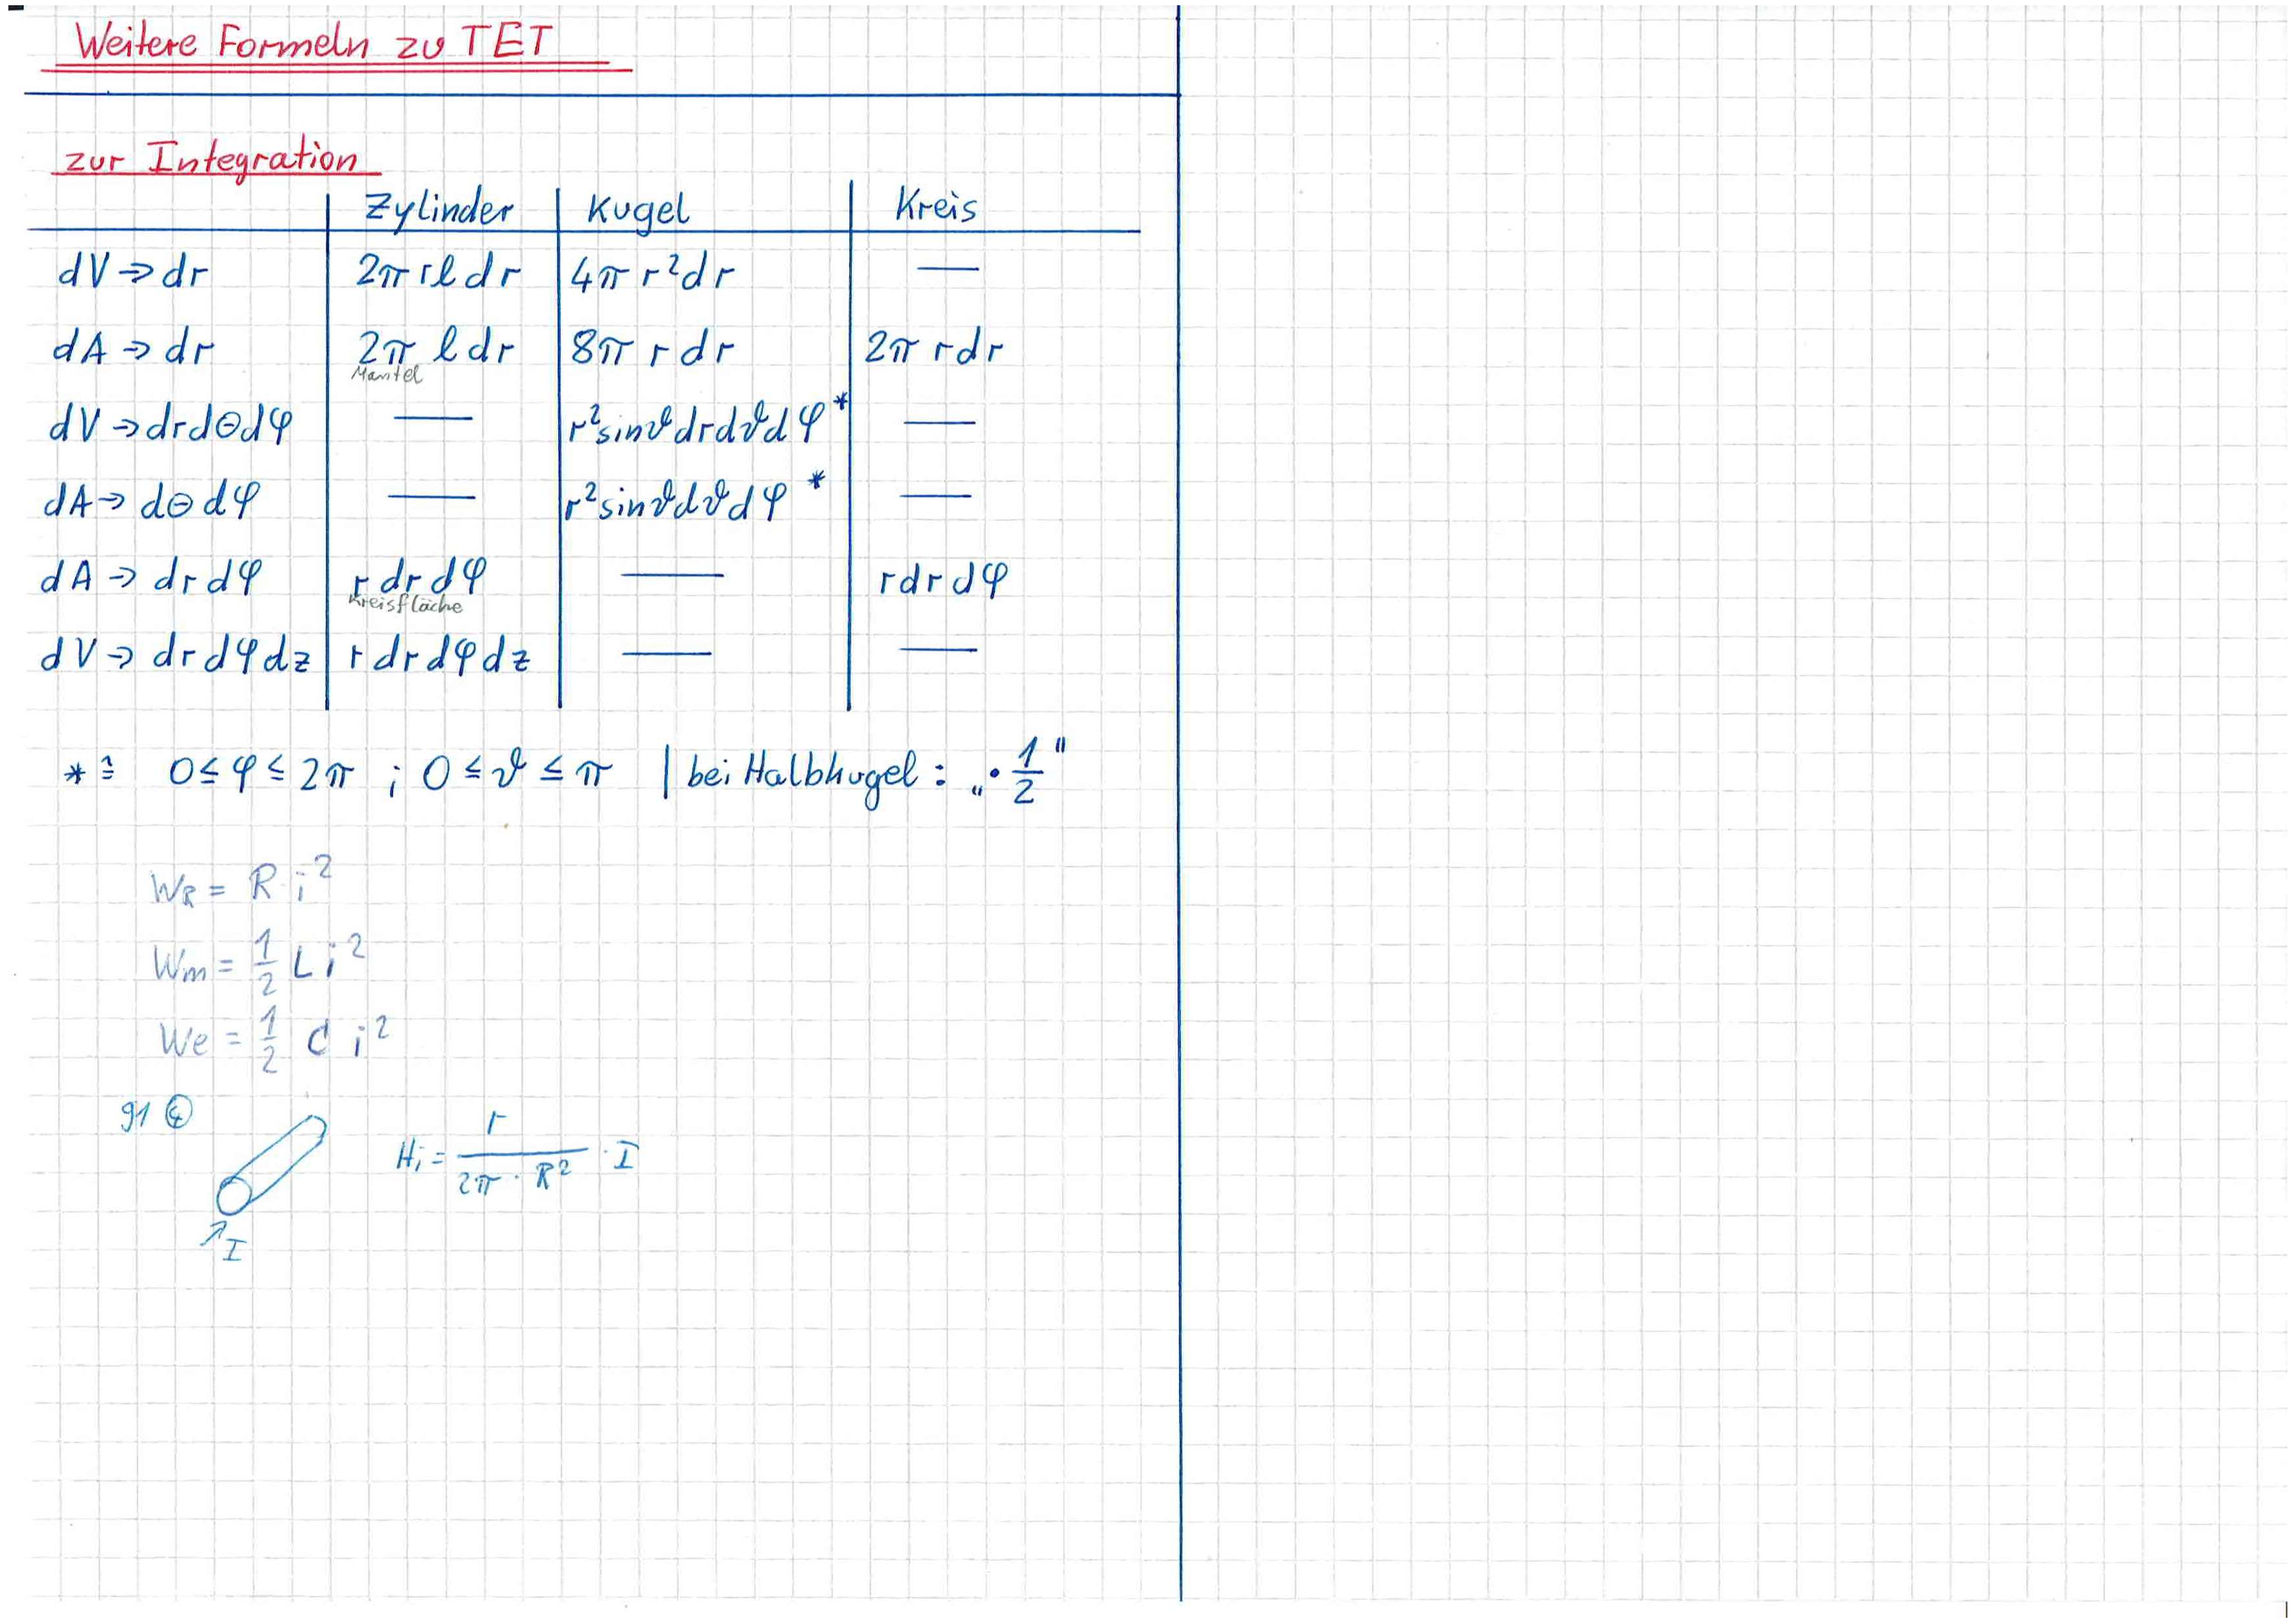 Weitere Formeln zu TET
zur Integration
Zylinder Kugel Kreis
dV → dr 2π r l dr 4π r² dr —
dA → dr 2π l dr 8π r dr 2π r dr
Mantel
dV → dr dΘ dφ — r² sinϑ dr dϑ dφ * —
dA → dΘ dφ — r² sinϑ dϑ dφ * —
dA → dr dφ r dr dφ — r dr dφ
Kreisfläche
dV → dr dφ dz r dr dφ dz — —
* ≙ 0 ≤ φ ≤ 2π ; 0 ≤ ϑ ≤ π | bei Halbkugel : „· 1/2"
W_R = R i²
W_m = 1/2 L i²
W_e = 1/2 C i²
H_i = r / (2π · R²) · I
I